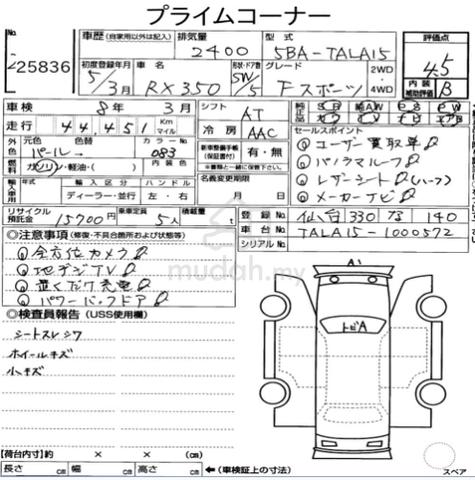 プライムコーナー
No. 25836
車歴 (自家用以外は記入) 排気量 2400 型式 5BA-TALA15 評価点 4.5
初度登録年月 5/3月 車名 RX350 ドア・形 5W/5 グレード Fスポーツ 2WD 4WD 内装補助評価 B
車検 8年 3月 シフト AT 純正品 SR AW PS PW
走行 44,451 Km マイル 冷房 AAC カワ TV ナビ エアB
外色 元色 パール 色替 カラーNo. 083 内装色 新車整備手帳(保証書付) 有・無 セールスポイント
※書類と一緒に保管して下さい。
燃料 ガソリン・軽油・( )
① ユーザー買取車
② パノラマルーフ
③ レザーシート(ハーフ)
④ メーカーナビ
輸入車専用 年式 輸入区分 ディーラー・並行 ハンドル 左・右 名義変更期限 月 日
リサイクル預託金 15700円 乗車定員 5人 積載量 t 登録No. 仙台 330 な 140
車台No. TALA15-1000572
シリアルNo.
◎注意事項 (修復・不具合箇所および状態等)
① 全方位カメラ
② 地デジTV
③ 置くだけ充電
④ パワーバックドア
mudah.my
◎検査員報告 (USS使用欄)
シートスレ シワ
ホイールキズ
小キズ
A1
トビA
【荷台内寸】約 × × (cm)
長さ cm 幅 cm 高さ cm ←(車検証上の寸法)
スペア